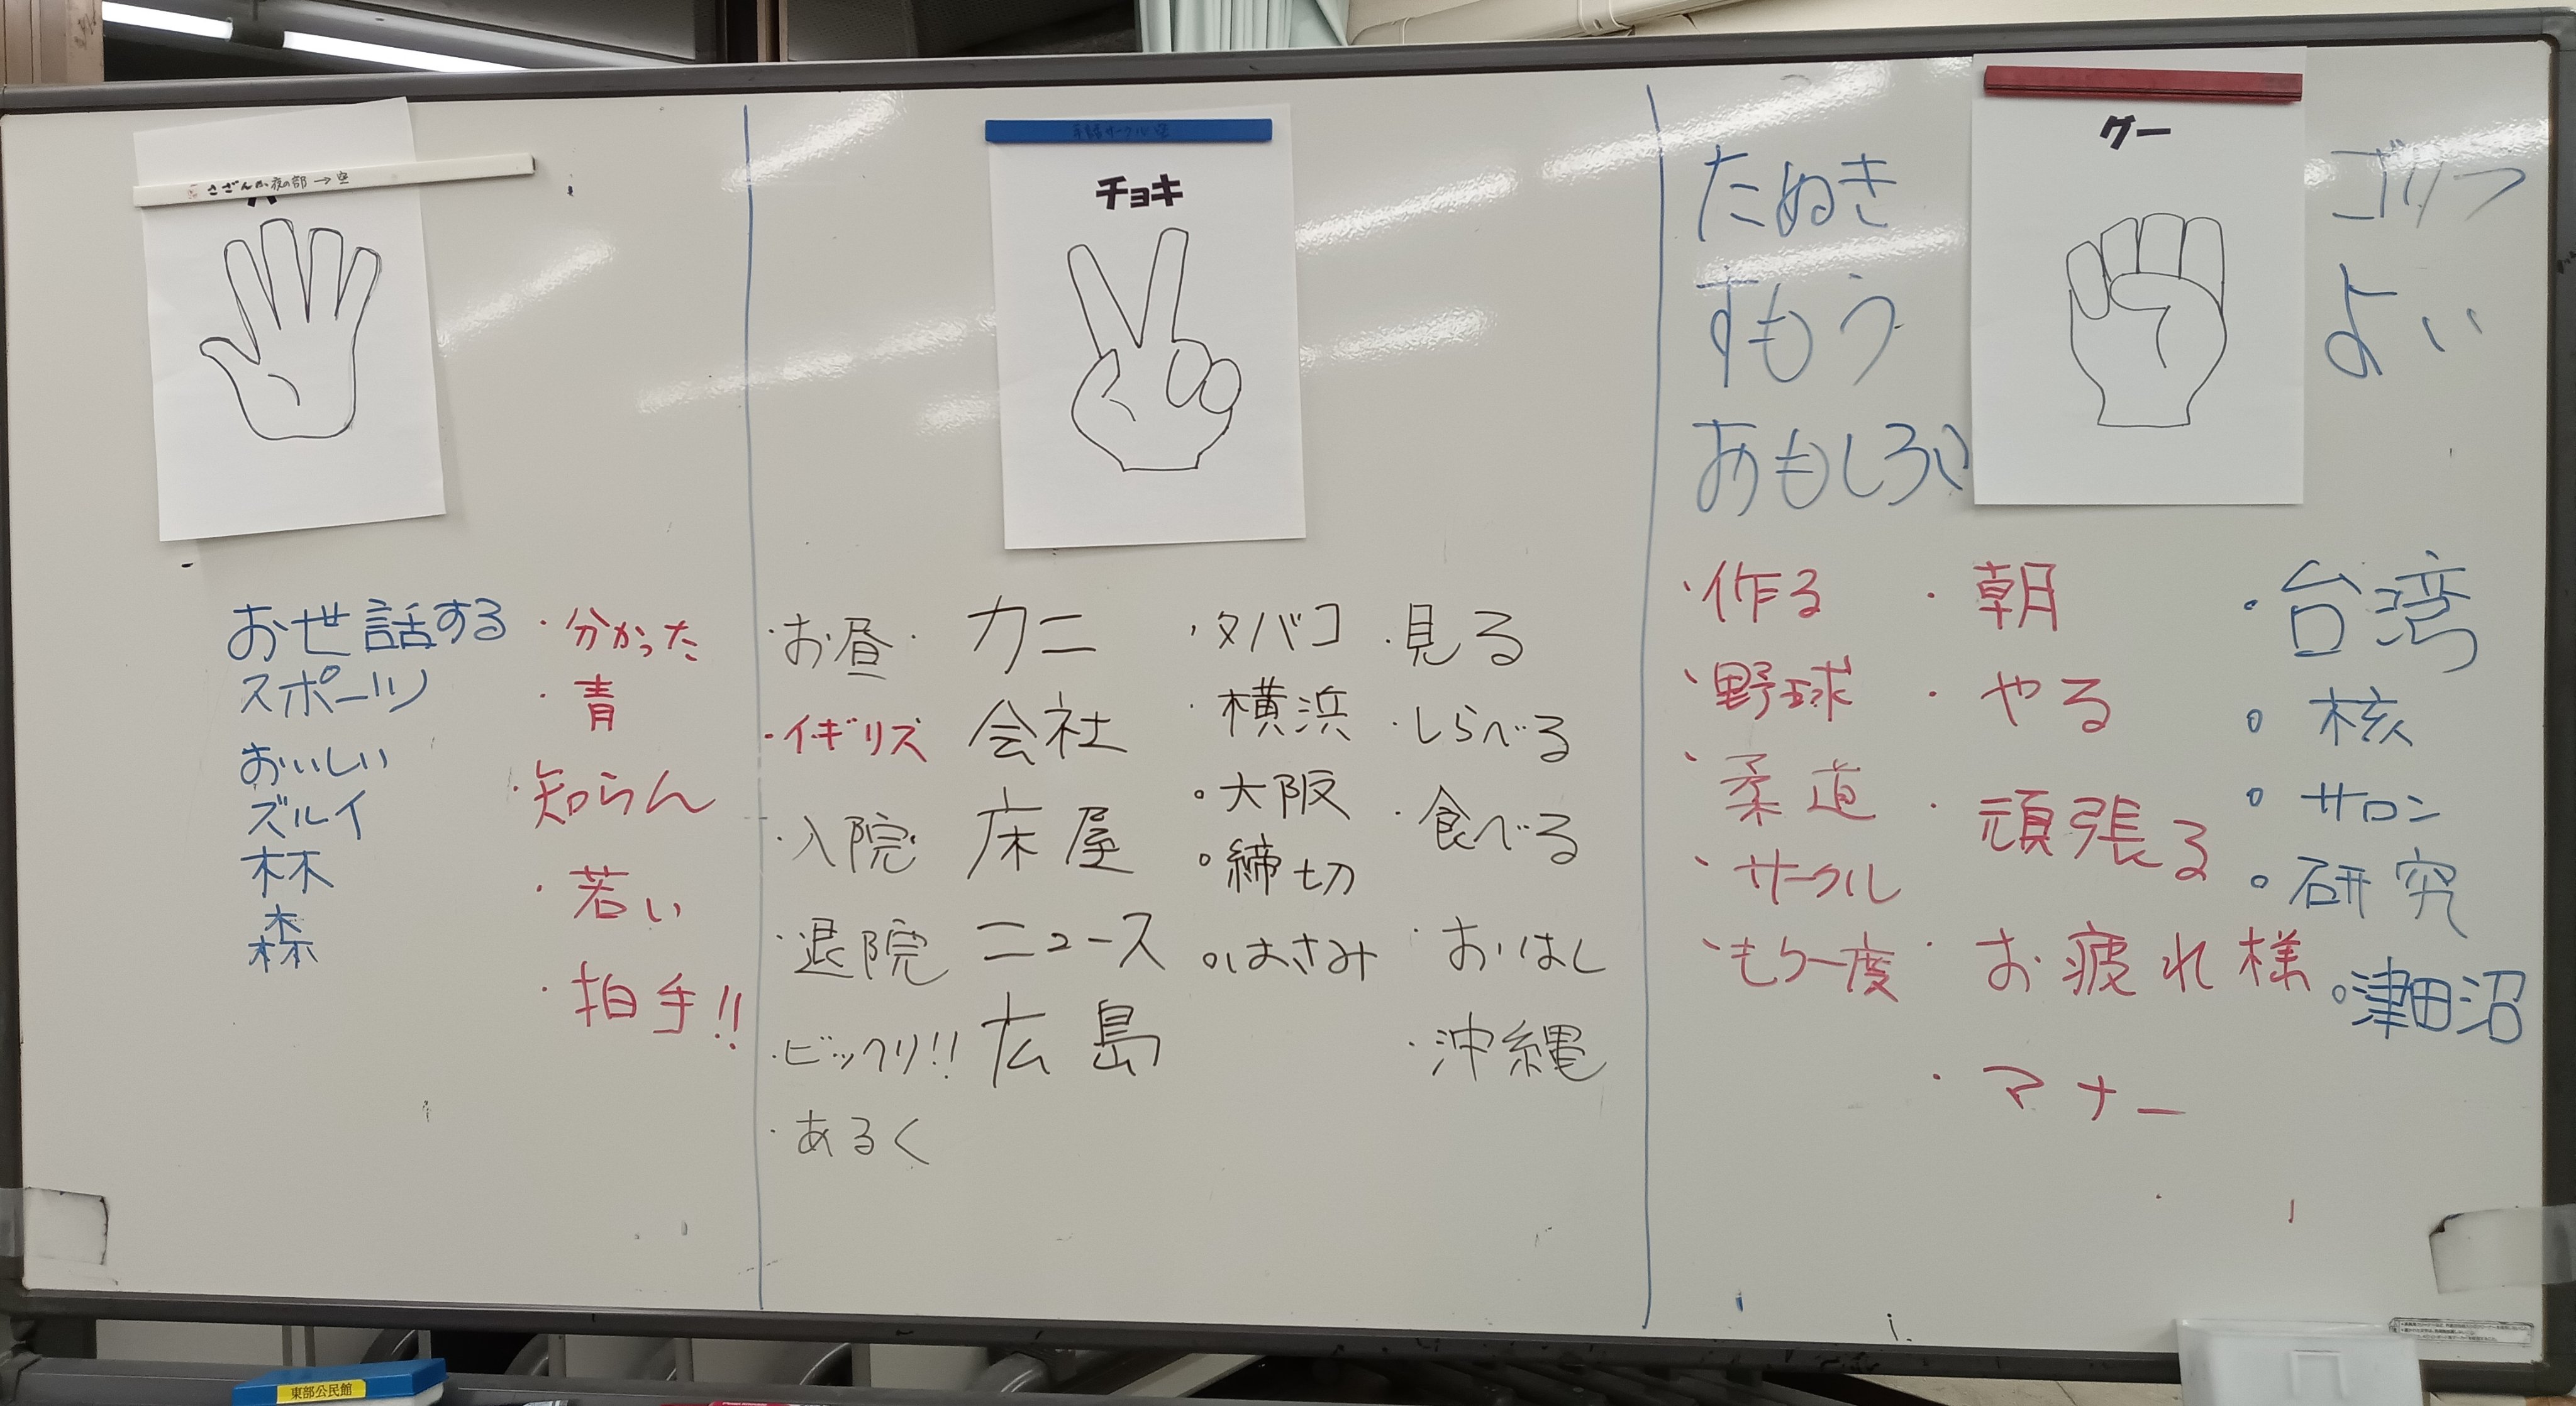 さざんか夜の部→空
お世話する
スポーツ
おいしい
ズルイ
林
森
・分かった
・青
・知らん
・若い
・拍手!!
手話サークル空
チョキ
・お昼・
・イギリズ
・入院
・退院
・ビックリ!!
・あるく
カニ
会社
床屋
ニュース
広島
・タバコ
・横浜
。大阪
。締切
。はさみ
・見る
・しらべる
・食べる
・おはし
・沖縄
グー
たぬき
すもう
おもしろい
よい
・作る
・野球
・柔道
・サークル
・もう一度
・朝
・やる
・頑張る
・お疲れ様
・マナー
・台湾
。核
。サロン
。研究
。津田沼
東部公民館